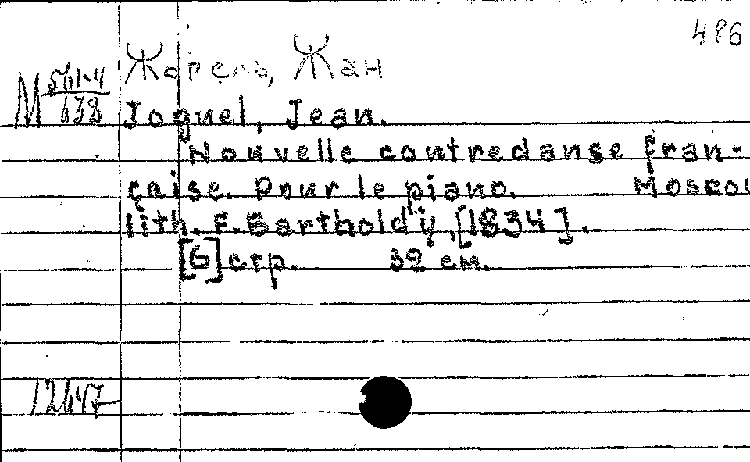 486
Жорель, Жан
М 561-4/638
Joguel, Jean.
Nouvelle contredanse fran-
çaise. Pour le piano. Moscou
lith. F. Bartholdÿ, [1834].
[6] стр. 32 см.
12647